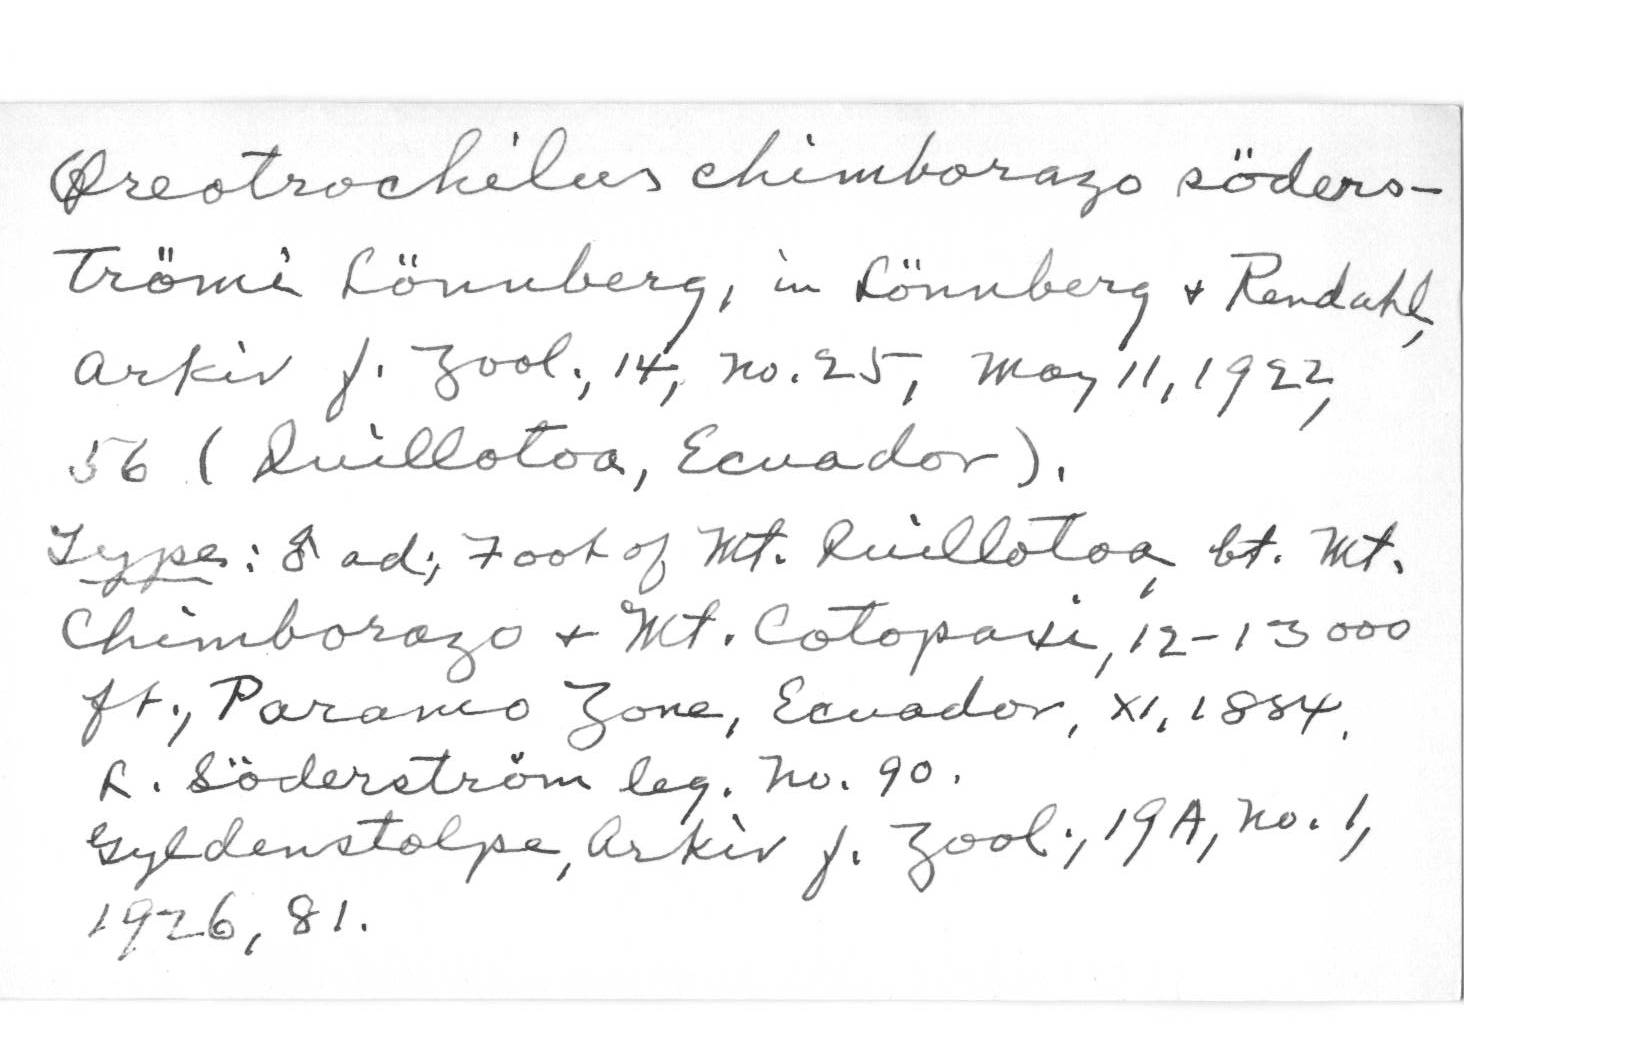 Oreotrochilus chimborazo söders-
trömi Lönnberg, in Lönnberg + Rendahl,
Arkiv f. Zool., 14, no. 25, May 11, 1922,
56 (Quillotoa, Ecuador).
Type: ♂ ad; Foot of Mt. Quillotoa, bt. Mt.
Chimborazo + Mt. Cotopaxi, 12-13000
ft., Paramo Zone, Ecuador, XI, 1884.
L. Söderström leg. No. 90.
Gyldenstolpe, Arkiv f. Zool., 19A, no. 1,
1926, 81.